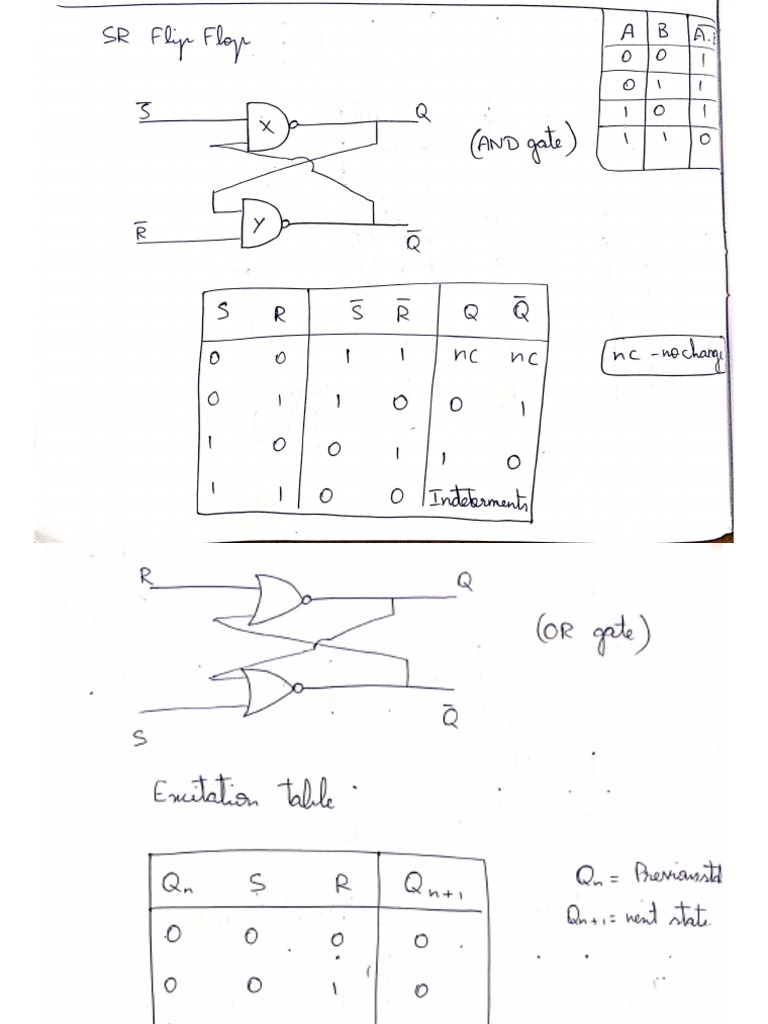 SR Flip Flop
A B A.
0 0 1
0 1 1
1 0 1
1 1 0
S̅ X Q
(AND gate)
R̅ Y Q̅
S R S̅ R̅ Q Q̅
0 0 1 1 nc nc
0 1 1 0 0 1
1 0 0 1 1 0
1 1 0 0 Indeterments
nc - no chang
R Q
(OR gate)
S Q̅
Excitation table
Qn S R Qn+1
0 0 0 0
0 0 1 0
Qn = Previousst
Qn+1 = next state